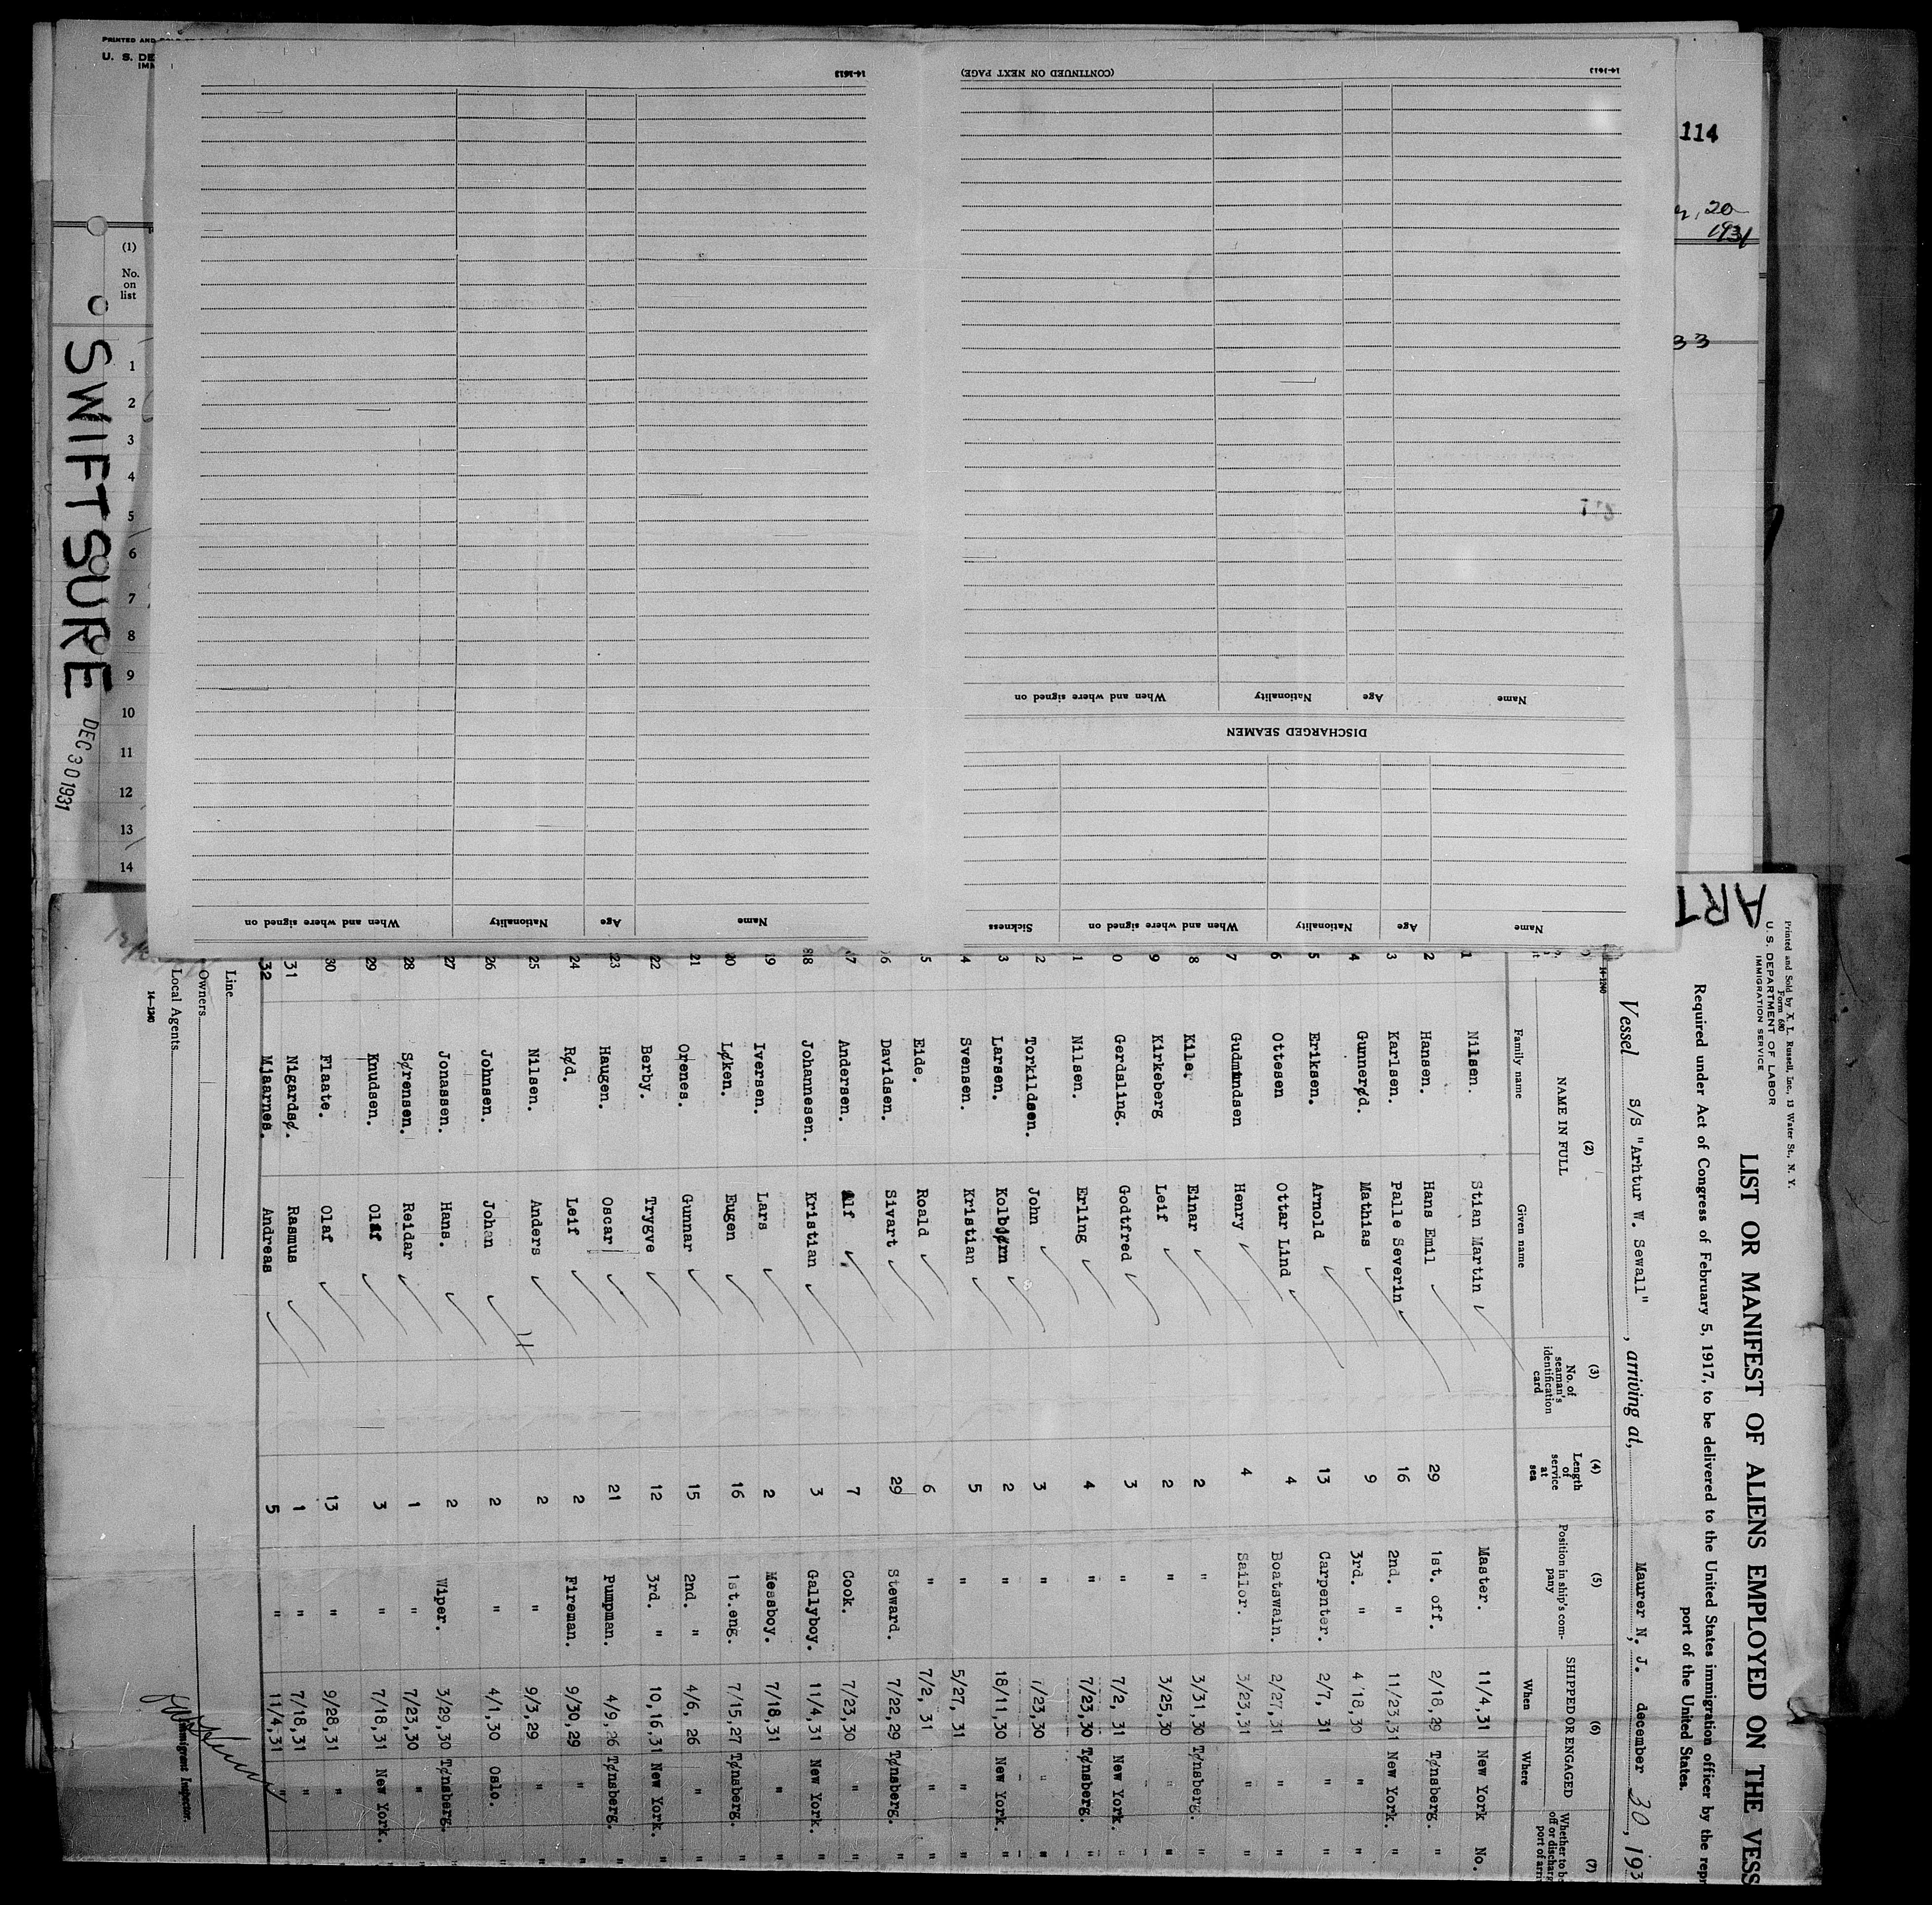 PRINTED AND
U. S. DE
IMM
(1)
No.
on
list
1
2
3
4
5
6
7
8
9
10
11
12
13
14
SWIFTSURE
DEC 30 1931
114
20
1931
33
14-1613
(CONTINUED ON NEXT PAGE)
14-1613
Name Age Nationality When and where signed on
DISCHARGED SEAMEN
Name Age Nationality When and where signed on Sickness
Name Age Nationality When and where signed on
ART
Printed and Sold by X. L. Russell, Inc., 13 Water St., N. Y.
Form 680
U. S. DEPARTMENT OF LABOR
IMMIGRATION SERVICE
LIST OR MANIFEST OF ALIENS EMPLOYED ON THE VESS
Required under Act of Congress of February 5, 1917, to be delivered to the United States immigration officer by the repr
port of the United States.
Vessel S/S "Arhtur W. Sewall", arriving at, Maurer N, J. december 30, 193
14-1240
(2) (3) (4) (5) (6) (7)
NAME IN FULL
Family name Given name
No. of seaman's identification card
Length of service at sea
Position in ship's com-pany
SHIPPED OR ENGAGED
When Where
Whether to b off or discharg port of arri
1 Nilsen. Stian Martin Master. 11/4,31 New York No.
2 Hansen. Hans Emil 29 1st. off. 2/18,29 Tønsberg. "
3 Karlsen. Palle Severin 16 2nd. " 11/23,31 New York. "
4 Gunnerød. Mathias 9 3rd. " 4 18,30 " "
5 Eriksen. Arnold 13 Carpenter. 2/7, 31 " "
6 Ottesen Ottar Lind 4 Boatswain. 2/27,31 " "
7 Gudmundsen Henry 4 Sailor. 3/23,31 " "
8 Kile. Einar 2 " 3/31,30 Tønsberg. "
9 Kirkeberg Leif 2 " 3/25,30 " "
0 Gerdsling. Godtfred 3 7/2, 31 New York. "
1 Nilsen. Erling 4 " 7/23,30 Tønsberg. "
2 Torkildsen. John 3 " 7/23,30 " "
3 Larsen. Kolbjørn 2 " 18/11,30 New York. "
4 Svensen. Kristian 5 " 5/27, 31 "
5 Eide. Roald 6 " 7/2, 31 " "
6 Davidsen. Sivart 29 Steward. 7/22,29 Tønsberg. "
7 Andersen. Alf 7 Cook. 7/23,30 " "
18 Johannesen. Kristian 3 Gallyboy. 11/4,31 New York. "
19 Iversen. Lars 2 Messboy. 7/18,31 " "
20 Løken. Eugen 16 1st.eng. 7/15,27 Tønsberg. "
21 Orenes. Gunnar 15 2nd. " 4/6, 26 " "
22 Berby. Trygve 12 3rd. " 10,16,31 New York. "
23 Haugen. Oscar 21 Pumpman. 4/9,26 Tønsberg. "
24 Rød. Leif 2 Fireman. 9/30,29 " "
25 Nilsen. Anders 2 " 9/3,29 " "
26 Johnsen. Johan 2 " 4/1,30 Oslo. "
27 Jonassen. Hans. 2 Wiper. 3/29,30 Tønsberg. "
28 Sørensen. Reidar 1 " 7/23,30 " "
29 Knudsen. Olaf 3 " 7/18,31 New York. "
30 Flaate. Olaf 13 " 9/28,31 " "
31 Nigardsø. Rasmus 1 " 7/18,31 " "
32 Mjaarnes. Andreas 5 " 11/4,31 " "
Line
Owners
Local Agents
14-1240
Immigrant Inspector.